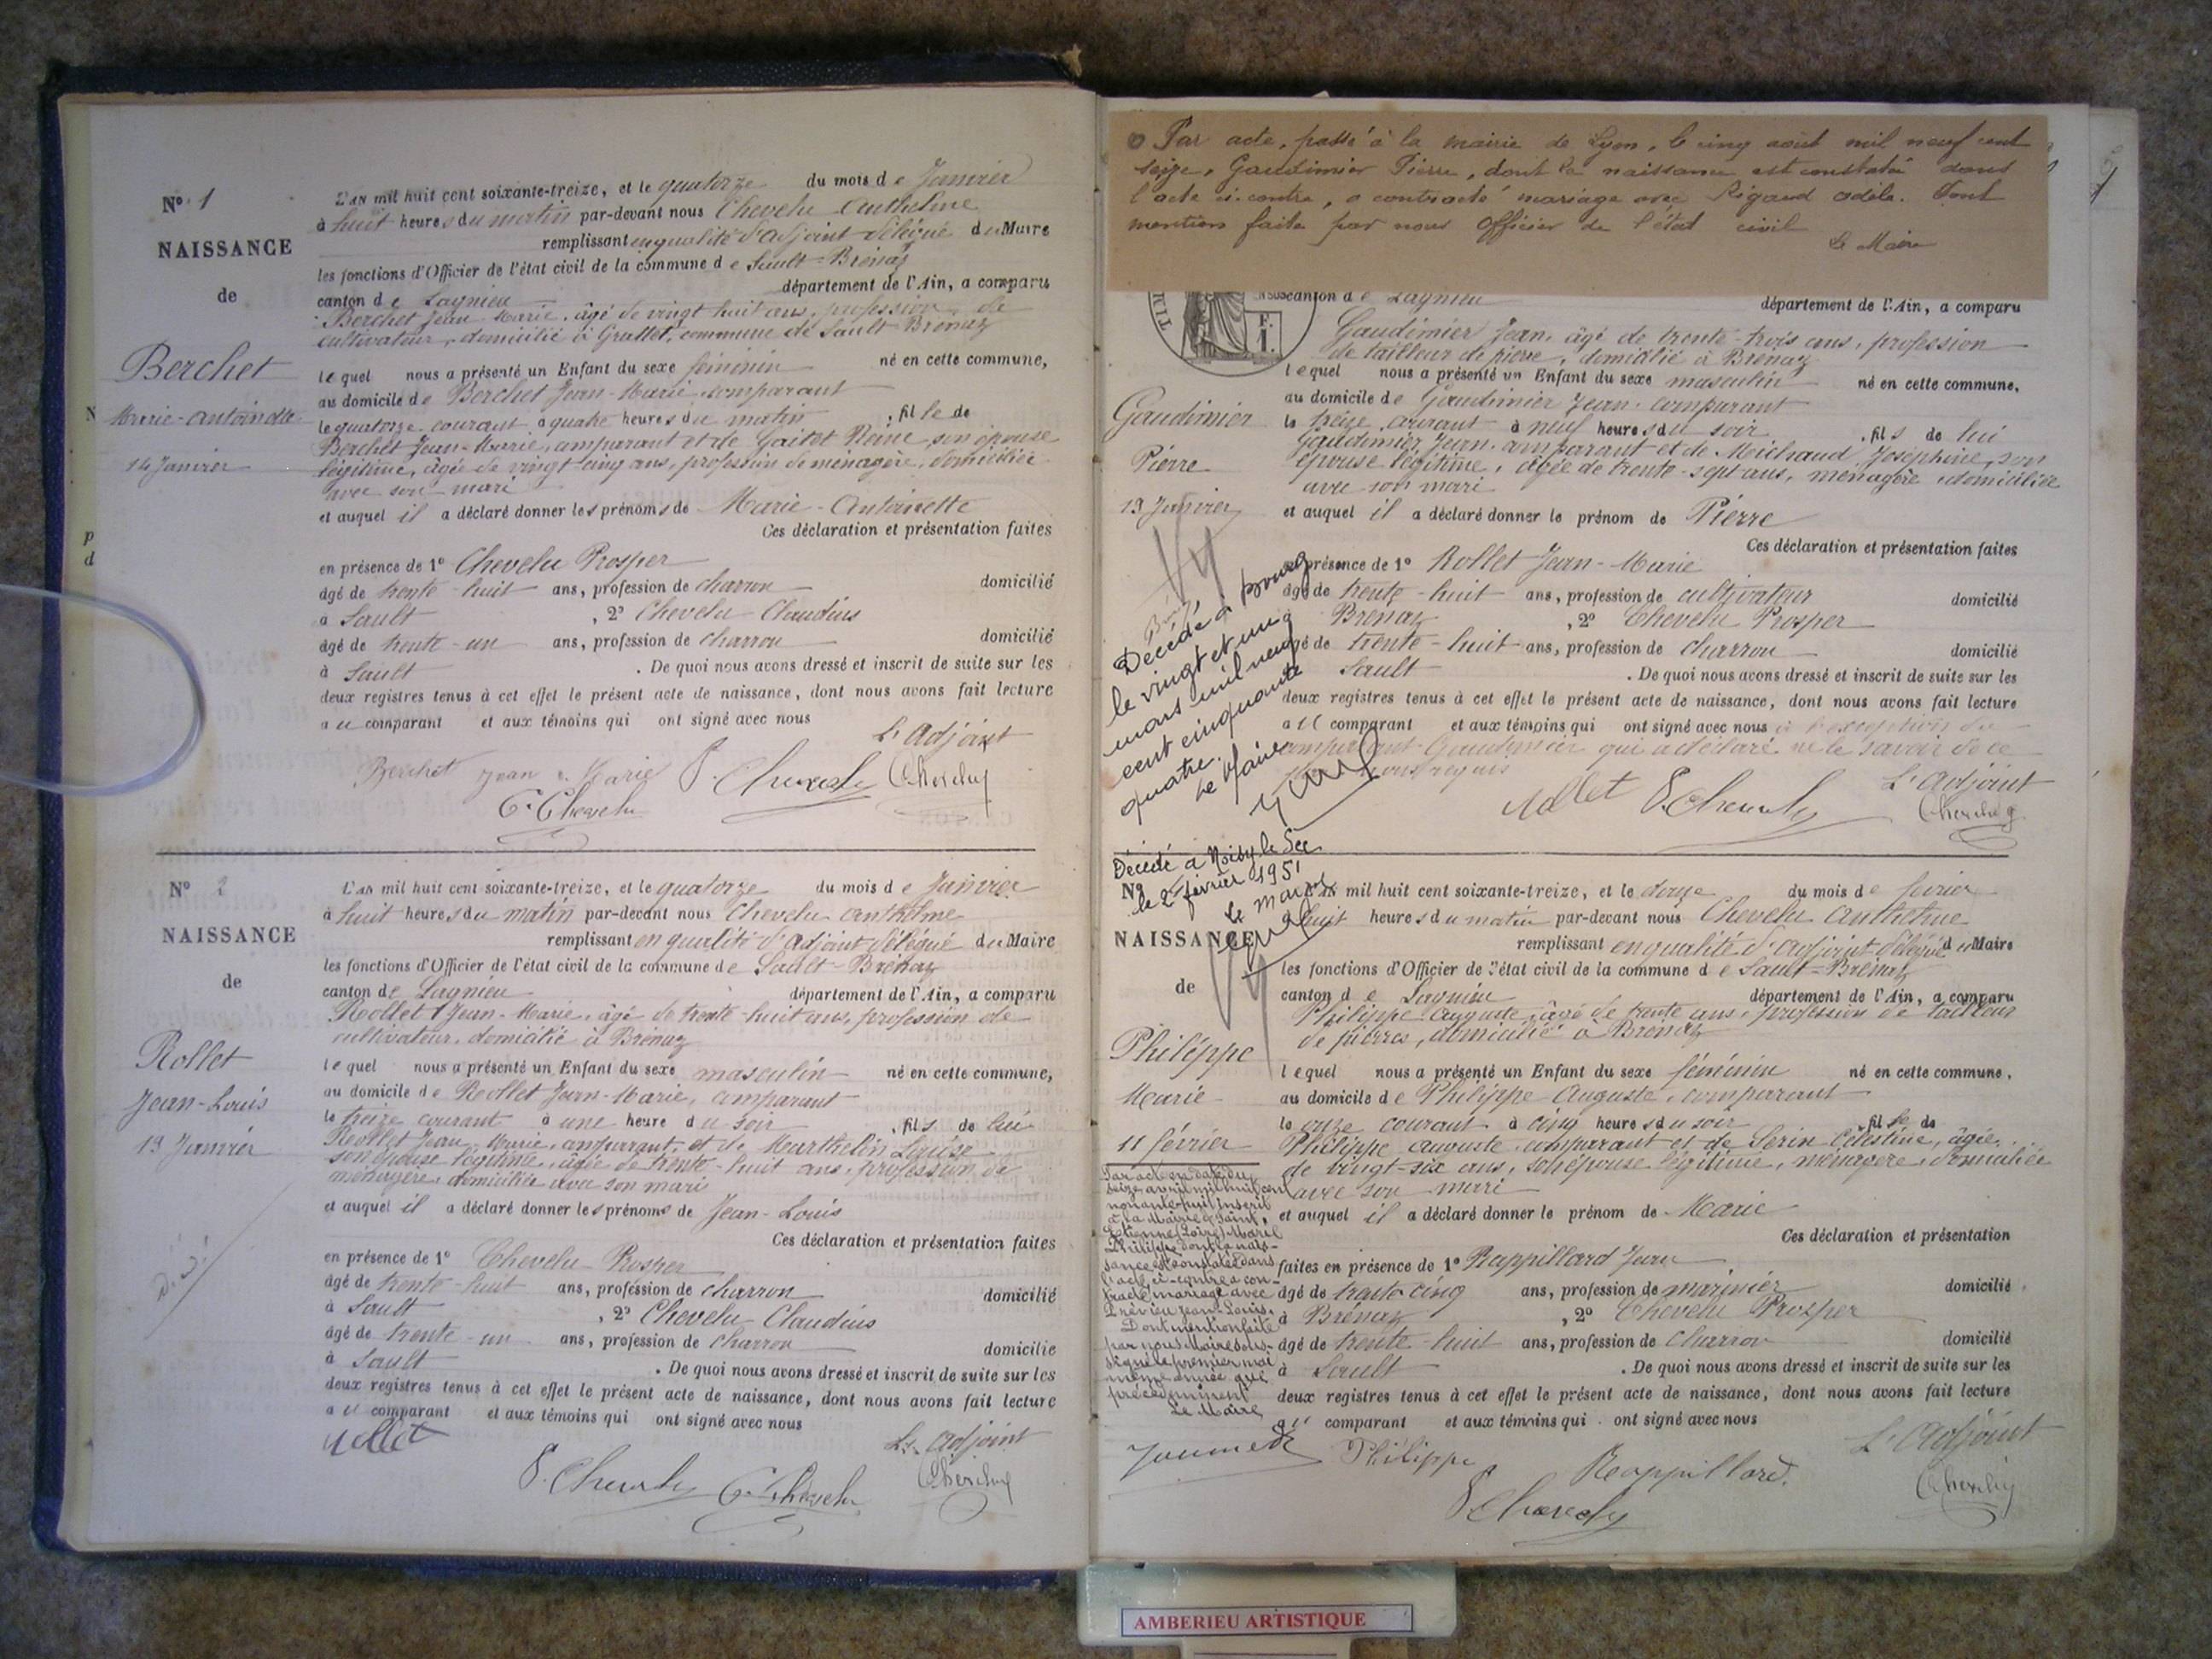 N° 1
NAISSANCE
de
Berchet
Marie-Antoinette
14 Janvier
L'AN mil huit cent soixante-treize, et le quatorze du mois de Janvier
à huit heures du matin par-devant nous Chevelu Anthelme
remplissant en qualité d'Adjoint délégué du Maire
les fonctions d'Officier de l'état civil de la commune de Sault-Brénaz
canton de Lagnieu département de l'Ain, a comparu
Berchet Jean Marie, âgé de vingt huit ans, profession de
cultivateur, domicilié à Grattet, commune de Sault Brénaz
lequel nous a présenté un Enfant du sexe féminin né en cette commune,
au domicile de Berchet Jean-Marie, comparant
le quatorze courant à quatre heures du matin, fille de
Berchet Jean-Marie, comparant et de Gaitet Reine son épouse
légitime, âgée de vingt cinq ans, profession de ménagère, domiciliée
avec son mari
et auquel il a déclaré donner les prénoms de Marie-Antoinette
Ces déclaration et présentation faites
en présence de 1° Chevelu Prosper
âgé de trente-huit ans, profession de charron domicilié
à Sault, 2° Chevelu Claudius
âgé de trente-un ans, profession de charron domicilié
à Sault. De quoi nous avons dressé et inscrit de suite sur les
deux registres tenus à cet effet le présent acte de naissance, dont nous avons fait lecture
au comparant et aux témoins qui ont signé avec nous
L'Adjoint
Berchet Jean Marie P. Chevelu Chevelu
C. Chevelu
N° 2
NAISSANCE
de
Rollet
Jean-Louis
13 Janvier
L'AN mil huit cent soixante-treize, et le quatorze du mois de Janvier
à huit heures du matin par-devant nous Chevelu Anthelme
remplissant en qualité d'Adjoint délégué du Maire
les fonctions d'Officier de l'état civil de la commune de Sault-Brénaz
canton de Lagnieu département de l'Ain, a comparu
Rollet Jean-Marie, âgé de trente-huit ans, profession de
cultivateur, domicilié à Brénaz
lequel nous a présenté un Enfant du sexe masculin né en cette commune,
au domicile de Rollet Jean-Marie, comparant
le treize courant à une heure du soir, fils de lui
Rollet Jean-Marie, comparant, et de Marthelin Louise
son épouse légitime, âgée de trente-huit ans, profession de
ménagère, domiciliée avec son mari
et auquel il a déclaré donner les prénoms de Jean-Louis
Ces déclaration et présentation faites
en présence de 1° Chevelu Prosper
âgé de trente-huit ans, profession de charron domicilié
à Sault, 2° Chevelu Claudius
âgé de trente-un ans, profession de charron domicilié
à Sault. De quoi nous avons dressé et inscrit de suite sur les
deux registres tenus à cet effet le présent acte de naissance, dont nous avons fait lecture
au comparant et aux témoins qui ont signé avec nous
Rollet L'Adjoint
P. Chevelu C. Chevelu Chevelu
Par acte, passé à la mairie de Lyon, le cinq août mil neuf cent
seize, Gaudimier Pierre, dont la naissance est constatée dans
l'acte ci-contre, a contracté mariage avec Rigaud Adèle. Dont
mention faite par nous Officier de l'état civil
Le Maire
canton de Lagnieu département de l'Ain, a comparu
Gaudimier Jean, âgé de trente-trois ans, profession
de tailleur de pierre, domicilié à Brénaz
lequel nous a présenté un Enfant du sexe masculin né en cette commune,
au domicile de Gaudimier Jean, comparant
le treize courant à neuf heures du soir, fils de lui
Gaudimier Jean, comparant et de Michaud Joséphine, son
épouse légitime, âgée de trente-sept ans, ménagère, domiciliée
avec son mari
et auquel il a déclaré donner le prénom de Pierre
Ces déclaration et présentation faites
en présence de 1° Rollet Jean-Marie
âgé de trente-huit ans, profession de cultivateur domicilié
à Brénaz, 2° Chevelu Prosper
âgé de trente-huit ans, profession de charron domicilié
à Sault. De quoi nous avons dressé et inscrit de suite sur les
deux registres tenus à cet effet le présent acte de naissance, dont nous avons fait lecture
au comparant et aux témoins qui ont signé avec nous à l'exception du
comparant Gaudimier qui a déclaré ne le savoir de ce
requis
L'Adjoint
Rollet P. Chevelu Chevelu
Gaudimier
Pierre
13 Janvier
Décédé à Bourg
le vingt et un
mars mil neuf
cent cinquante
quatre.
Le Maire
Décédé à Noisy le Sec
le 2 février 1951
Le Maire
N°
NAISSANCE
de
Philippe
Marie
11 février
Par acte en date du
seize avril mil huit cent
nonante-huit inscrit
à la Mairie de Saint-
Etienne (Loire) Marie
Philippe dont la nais-
sance est constatée dans
l'acte ci-contre a con-
tracté mariage avec
Prévieu Jean-Louis.
Dont mention faite
par nous Maire sous-
signé le premier mai
même année que
précédemment
Le Maire
L'AN mil huit cent soixante-treize, et le douze du mois de février
à huit heures du matin par-devant nous Chevelu Anthelme
remplissant en qualité d'adjoint délégué du Maire
les fonctions d'Officier de l'état civil de la commune de Sault-Brénaz
canton de Lagnieu département de l'Ain, a comparu
Philippe Auguste, âgé de trente ans, profession de tailleur
de pierres, domicilié à Brénaz
lequel nous a présenté un Enfant du sexe féminin né en cette commune,
au domicile de Philippe Auguste, comparant
le onze courant à cinq heures du soir, fille de
Philippe Auguste, comparant et de Serin Célestine, âgée
de vingt-six ans, son épouse légitime, ménagère, domiciliée
avec son mari
et auquel il a déclaré donner le prénom de Marie
Ces déclaration et présentation
faites en présence de 1° Rappillard Jean
âgé de trente cinq ans, profession de marinier domicilié
à Brénaz, 2° Chevelu Prosper
âgé de trente-huit ans, profession de charron domicilié
à Sault. De quoi nous avons dressé et inscrit de suite sur les
deux registres tenus à cet effet le présent acte de naissance, dont nous avons fait lecture
au comparant et aux témoins qui ont signé avec nous
L'Adjoint
Philippe Rappillard
P. Chevelu Chevelu
AMBERIEU ARTISTIQUE